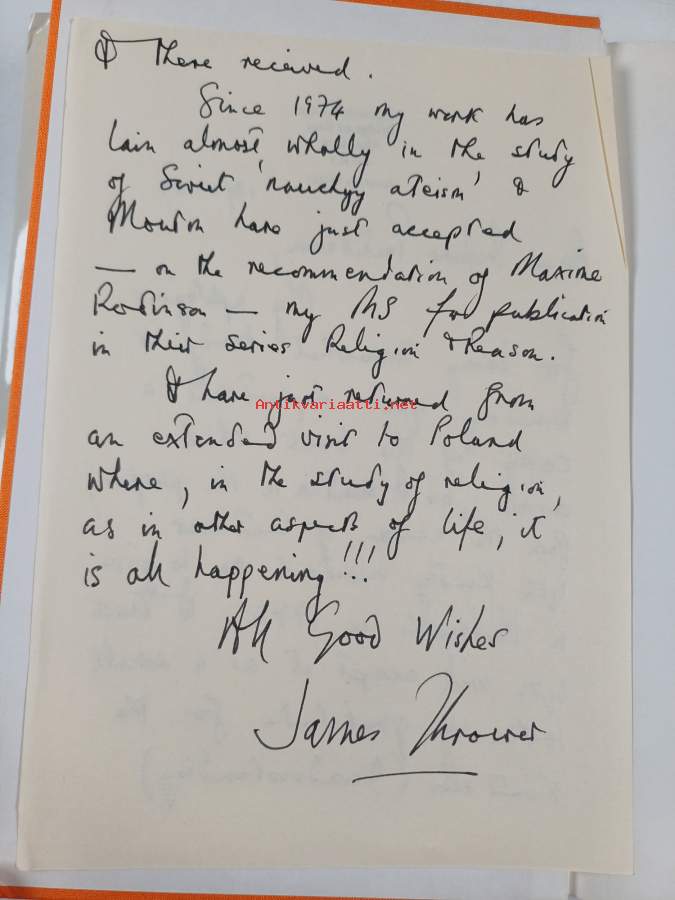 I there received.
Since 1974 my work has
lain almost wholly in the study
of Soviet 'nauchyy ateism' &
Mouton have just accepted
— on the recommendation of Maxime
Rodinson — my MS for publication
in their series Religion & Reason.
I have just returned from
Antikvariaatti.net
an extended visit to Poland
where, in the study of religion,
as in other aspects of life, it
is all happening!!!
All Good Wishes
James Thrower